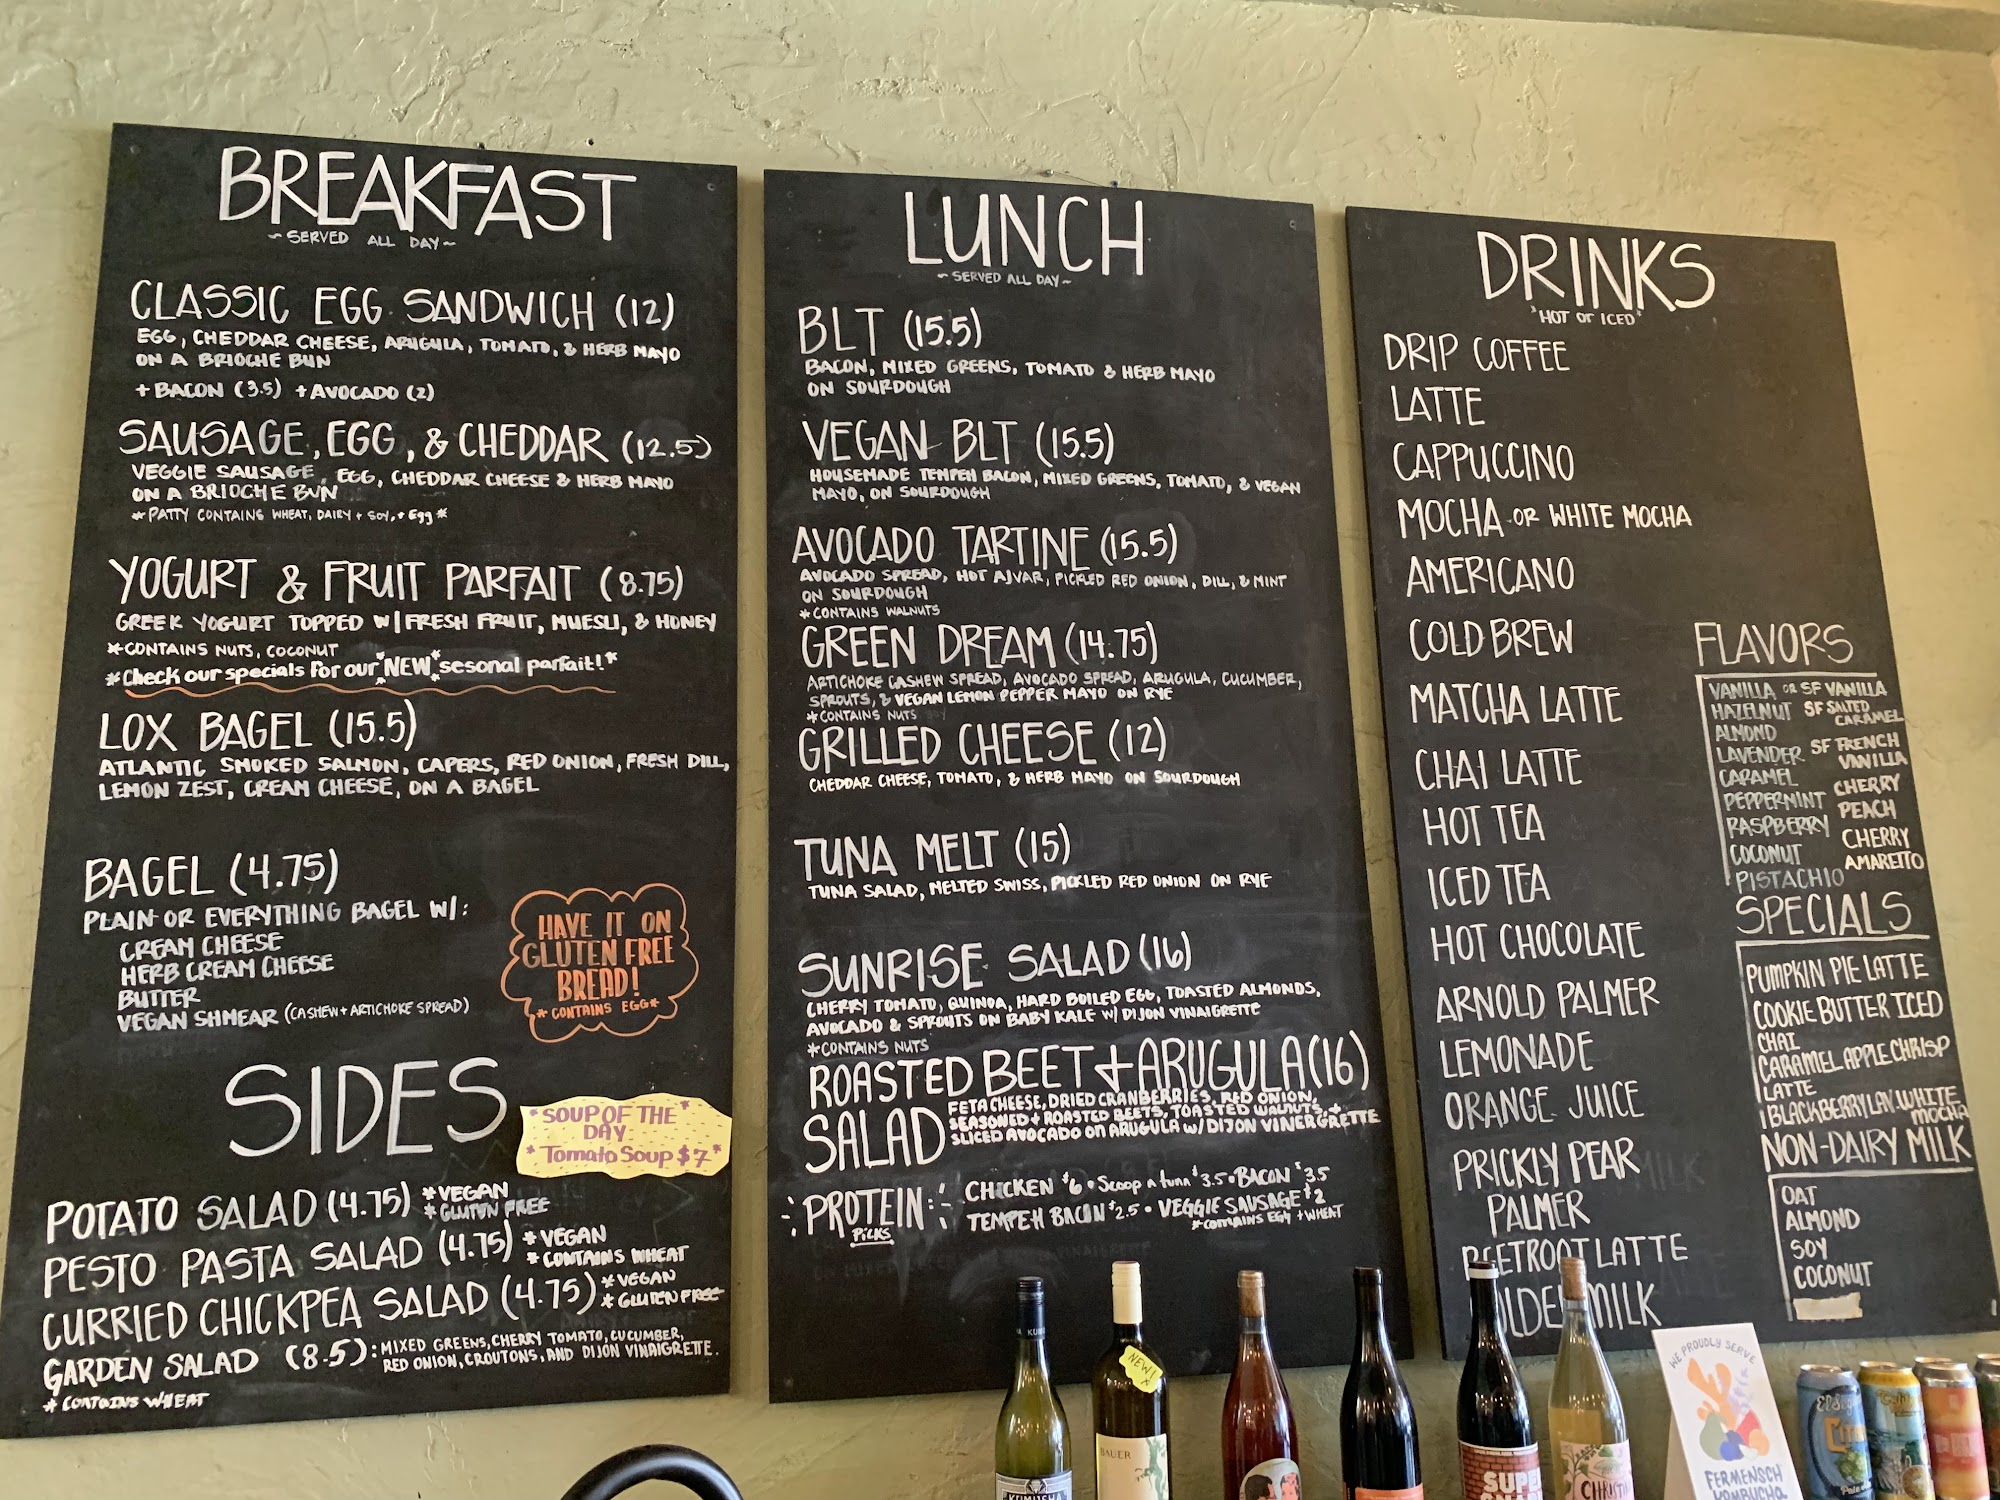 BREAKFAST
~ SERVED ALL DAY ~
CLASSIC EGG SANDWICH (12)
EGG, CHEDDAR CHEESE, ARUGULA, TOMATO, & HERB MAYO
ON A BRIOCHE BUN
+ BACON (3.5) + AVOCADO (2)
SAUSAGE, EGG, & CHEDDAR (12.5)
VEGGIE SAUSAGE, EGG, CHEDDAR CHEESE & HERB MAYO
ON A BRIOCHE BUN
* PATTY CONTAINS WHEAT, DAIRY + SOY, + Egg *
YOGURT & FRUIT PARFAIT (8.75)
GREEK YOGURT TOPPED W/ FRESH FRUIT, MUESLI, & HONEY
*CONTAINS NUTS, COCONUT
*Check our specials for our *NEW* sesonal parfait!*
LOX BAGEL (15.5)
ATLANTIC SMOKED SALMON, CAPERS, RED ONION, FRESH DILL,
LEMON ZEST, CREAM CHEESE, ON A BAGEL
BAGEL (4.75)
PLAIN OR EVERYTHING BAGEL W/:
CREAM CHEESE
HERB CREAM CHEESE
BUTTER
VEGAN SHMEAR (CASHEW + ARTICHOKE SPREAD)
HAVE IT ON
GLUTEN FREE
BREAD!
*CONTAINS EGG*
SIDES
*SOUP OF THE*
DAY
*Tomato Soup $7*
POTATO SALAD (4.75) *VEGAN
*GLUTEN FREE
PESTO PASTA SALAD (4.75) *VEGAN
*CONTAINS WHEAT
CURRIED CHICKPEA SALAD (4.75) *VEGAN
*GLUTEN FREE
GARDEN SALAD (8.5): MIXED GREENS, CHERRY TOMATO, CUCUMBER,
RED ONION, CROUTONS, AND DIJON VINAIGRETTE.
* CONTAINS WHEAT
LUNCH
~ SERVED ALL DAY ~
BLT (15.5)
BACON, MIXED GREENS, TOMATO & HERB MAYO
ON SOURDOUGH
VEGAN BLT (15.5)
HOUSEMADE TEMPEH BACON, MIXED GREENS, TOMATO, & VEGAN
MAYO, ON SOURDOUGH
AVOCADO TARTINE (15.5)
AVOCADO SPREAD, HOT AJVAR, PICKLED RED ONION, DILL, & MINT
ON SOURDOUGH
*CONTAINS WALNUTS
GREEN DREAM (14.75)
ARTICHOKE CASHEW SPREAD, AVOCADO SPREAD, ARUGULA, CUCUMBER,
SPROUTS, & VEGAN LEMON PEPPER MAYO ON RYE
*CONTAINS NUTS
GRILLED CHEESE (12)
CHEDDAR CHEESE, TOMATO, & HERB MAYO ON SOURDOUGH
TUNA MELT (15)
TUNA SALAD, MELTED SWISS, PICKLED RED ONION ON RYE
SUNRISE SALAD (16)
CHERRY TOMATO, QUINOA, HARD BOILED EGG, TOASTED ALMONDS,
AVOCADO & SPROUTS ON BABY KALE W/ DIJON VINAIGRETTE
*CONTAINS NUTS
ROASTED BEET + ARUGULA (16)
SALAD FETA CHEESE, DRIED CRANBERRIES, RED ONION,
SEASONED + ROASTED BEETS, TOASTED WALNUTS, +
SLICED AVOCADO ON ARUGULA W/ DIJON VINERGRETTE
PROTEIN: CHICKEN $6 • Scoop n tuna $3.5 • BACON $3.5
PICKS TEMPEH BACON $2.5 • VEGGIE SAUSAGE $2
*CONTAINS EGG + WHEAT
DRINKS
"HOT or ICED"
DRIP COFFEE
LATTE
CAPPUCCINO
MOCHA OR WHITE MOCHA
AMERICANO
COLD BREW
MATCHA LATTE
CHAI LATTE
HOT TEA
ICED TEA
HOT CHOCOLATE
ARNOLD PALMER
LEMONADE
ORANGE JUICE
PRICKLY PEAR
PALMER
BEETROOT LATTE
GOLDEN MILK
FLAVORS
VANILLA OR SF VANILLA
HAZELNUT SF SALTED
CARAMEL
ALMOND
LAVENDER SF FRENCH
VANILLA
CARAMEL CHERRY
PEPPERMINT PEACH
RASPBERRY CHERRY
COCONUT AMARETTO
PISTACHIO
SPECIALS
PUMPKIN PIE LATTE
COOKIE BUTTER ICED
CHAI
CARAMEL APPLE CHRISP
LATTE
BLACKBERRY LAV. WHITE
MOCHA
NON-DAIRY MILK
OAT
ALMOND
SOY
COCONUT
NEW!
BAUER
KUMUSHA
SUPER
WE PROUDLY SERVE
FERMENSCH
KOMBUCHA